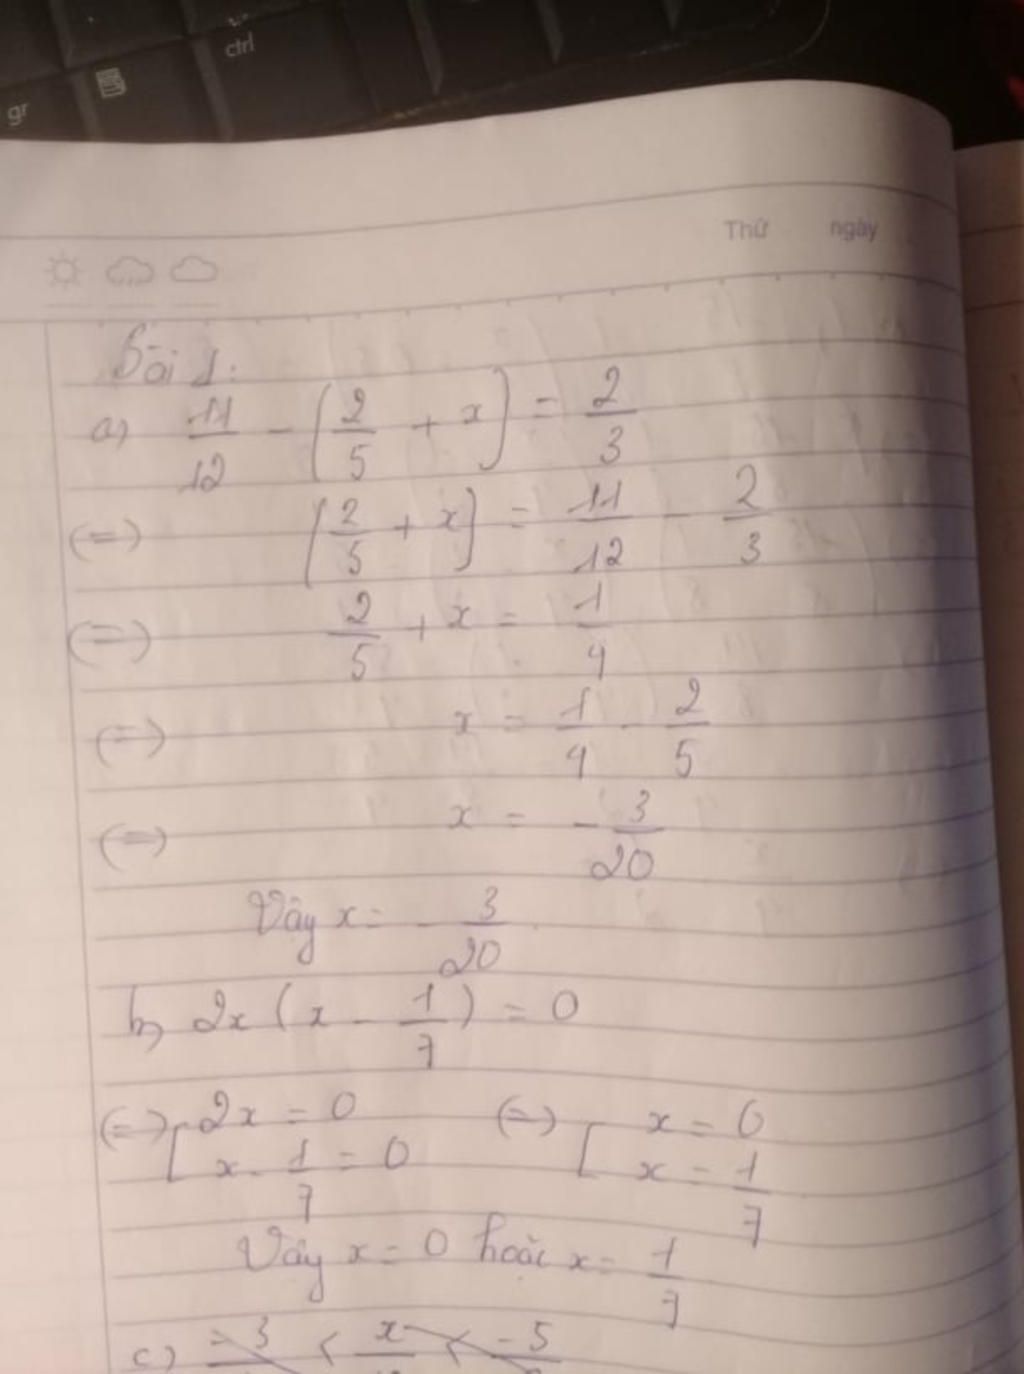 gr
ctrl
Thứ ngày
Bài 1:
a) 11/12 - (2/5 + x) = 2/3
(=) (2/5 + x) = 11/12 - 2/3
(=) 2/5 + x = 1/4
(=) x = 1/4 - 2/5
(=) x = -3/20
Vây x = -3/20
b) 2x (x - 1/7) = 0
(=) [ 2x = 0 (=) [ x = 0
x - 1/7 = 0 x = 1/7
Vây x = 0 hoăc x = 1/7
c) -3 < x < -5